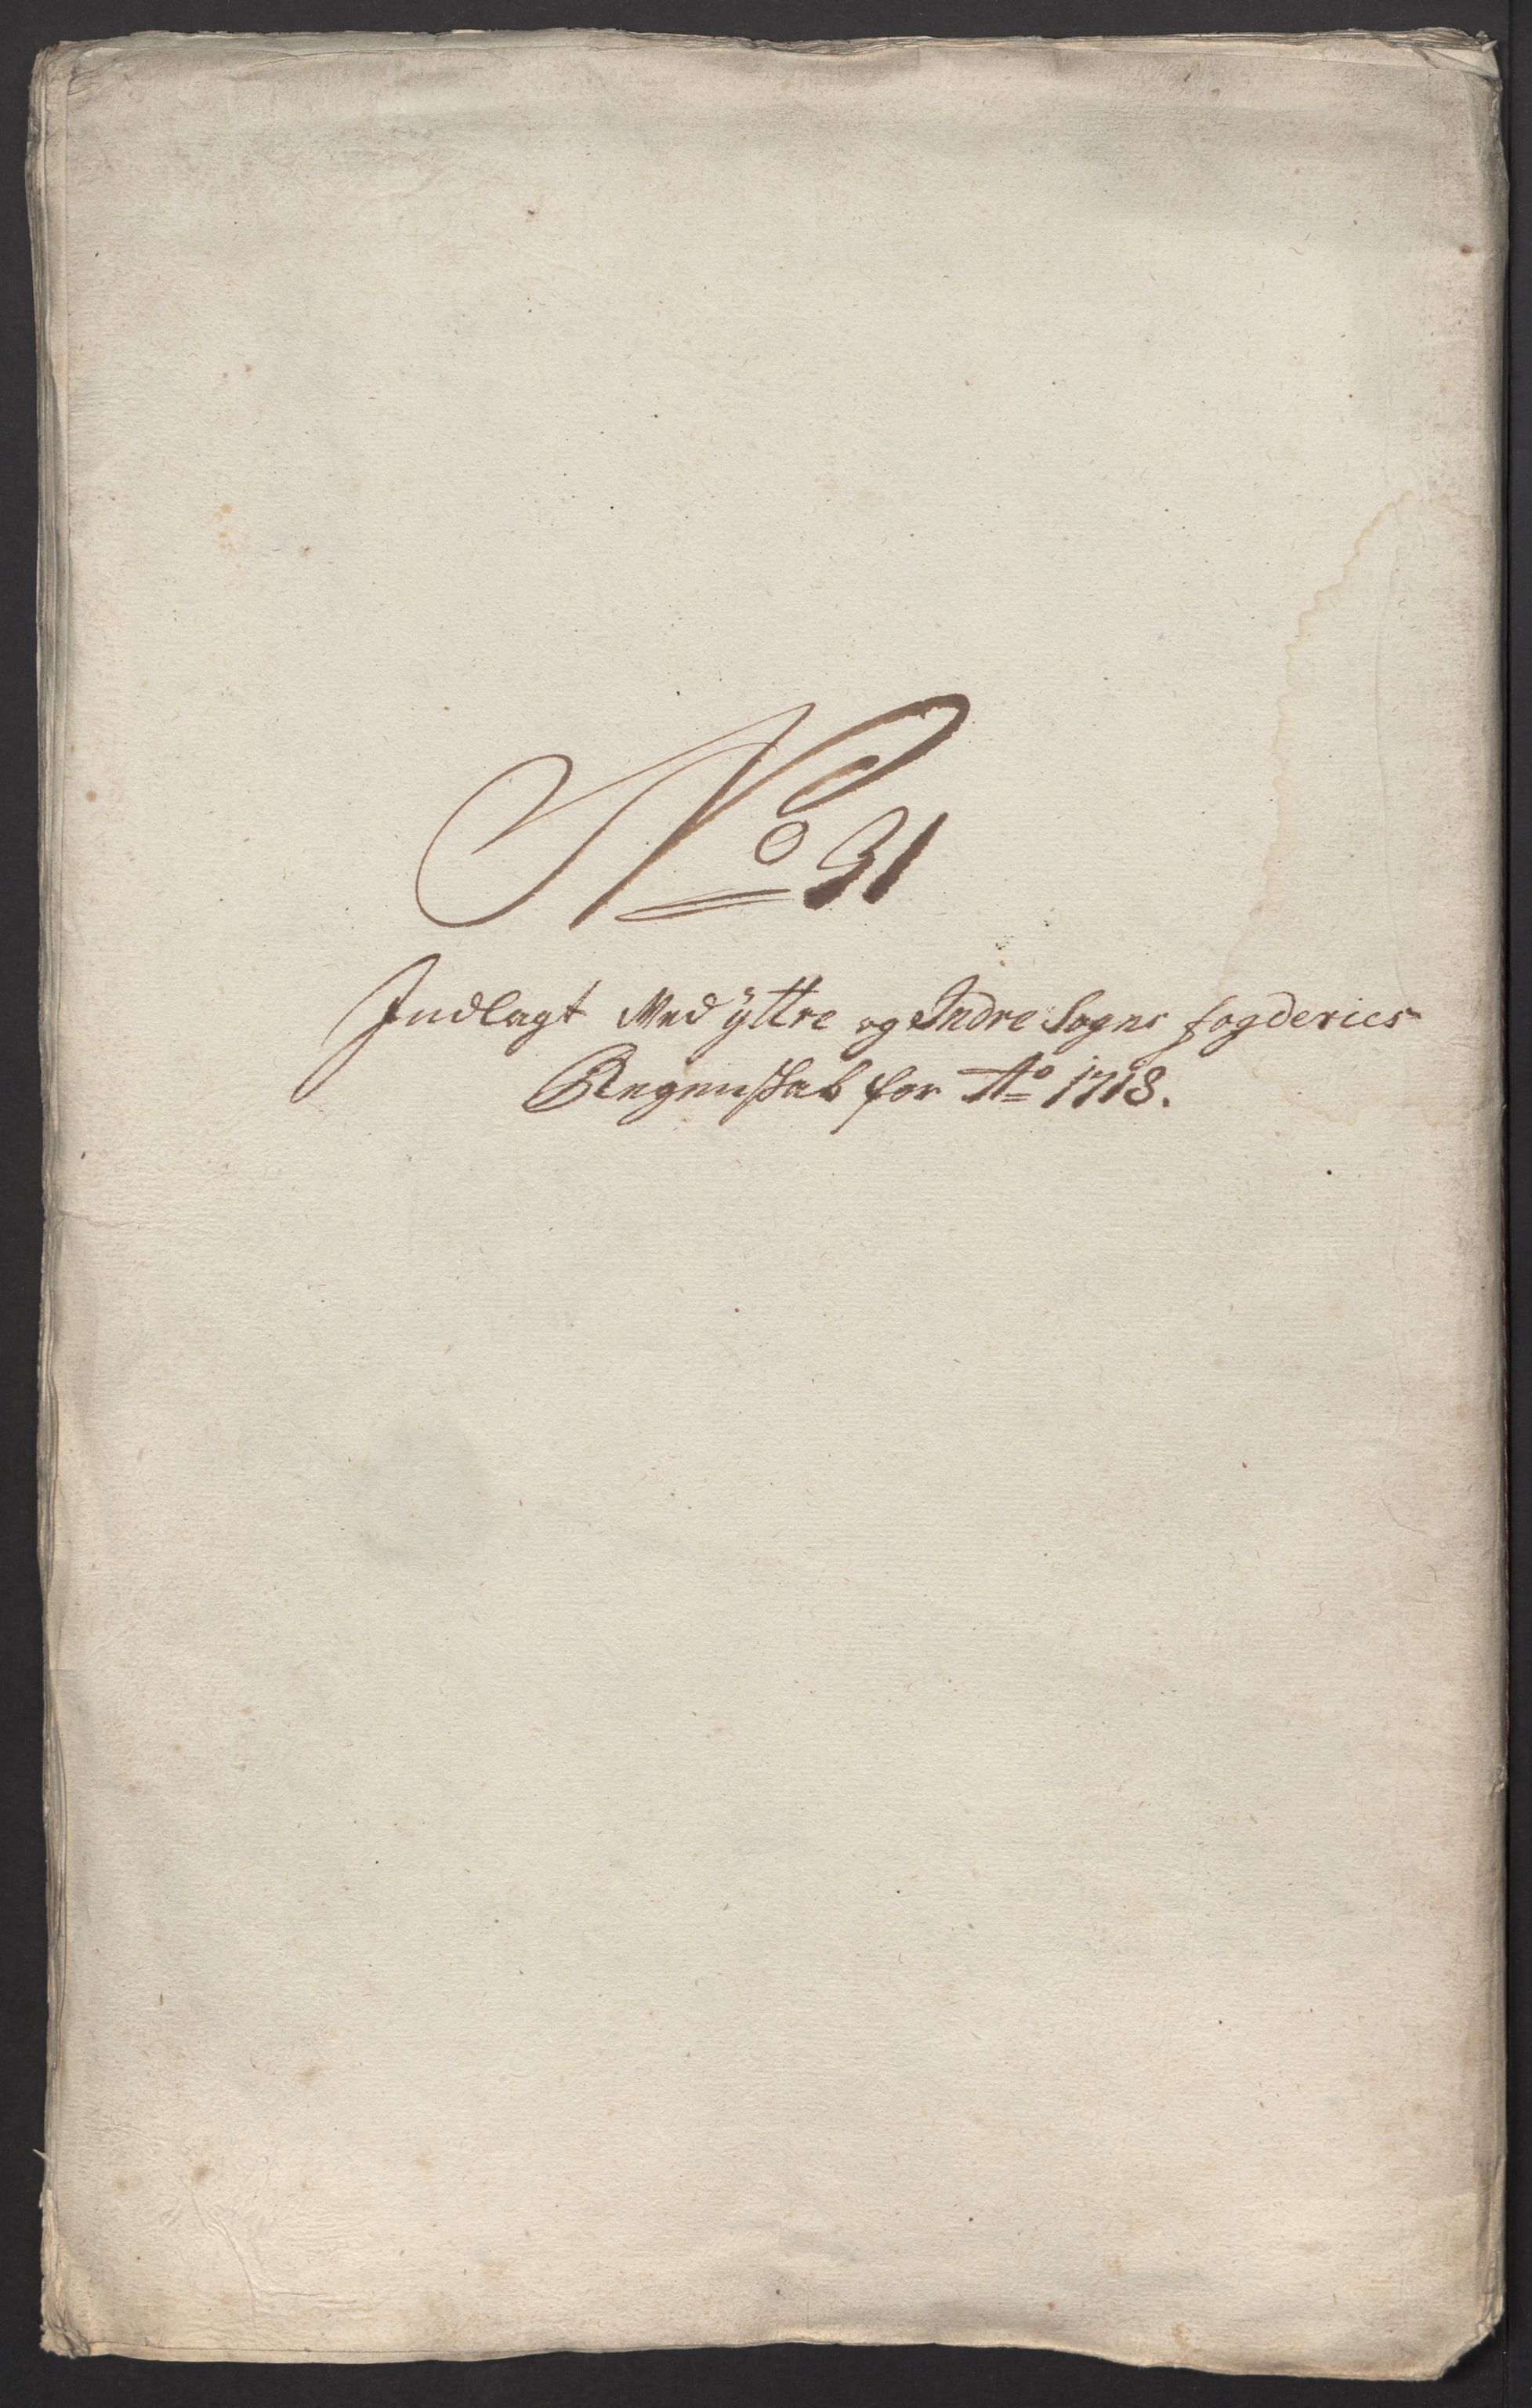 No 31
Indlagt Med ÿttre og Indre Sogns fogderies
Regenskab for Ao 1718.